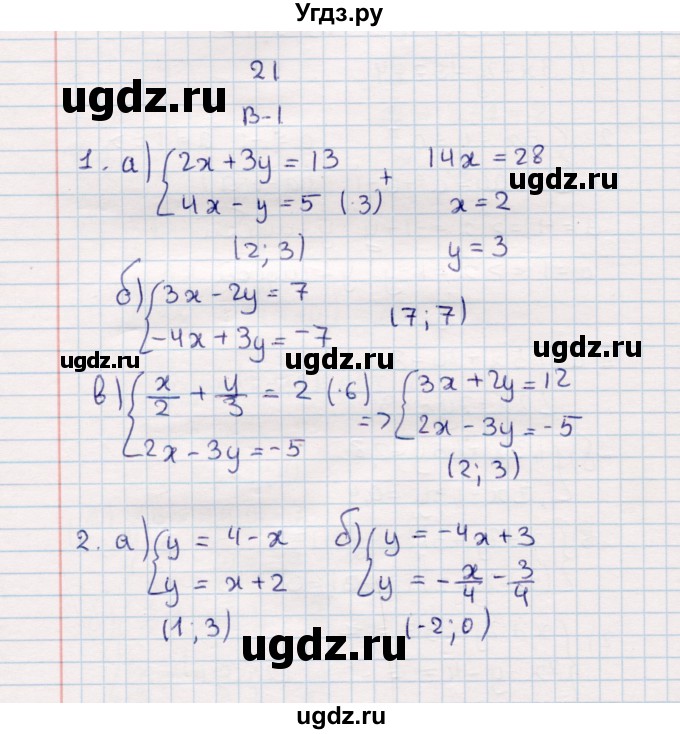 Угдз.ру
21
ugdz.ru
В-1
1. а) { 2x + 3y = 13
4x - y = 5 (·3) +
14x = 28
ugdz.ru
x = 2
y = 3
(2; 3)
б) { 3x - 2y = 7
-4x + 3y = -7
(7; 7)
ugdz.ru
ugdz.ru
в) { x/2 + y/3 = 2 (·6)
2x - 3y = -5
=> { 3x + 2y = 12
2x - 3y = -5
(2; 3)
2. а) { y = 4 - x
y = x + 2
(1; 3)
б) { y = -4x + 3
y = - x/4 - 3/4
(-2; 0)
ugdz.ru
ugdz.ru